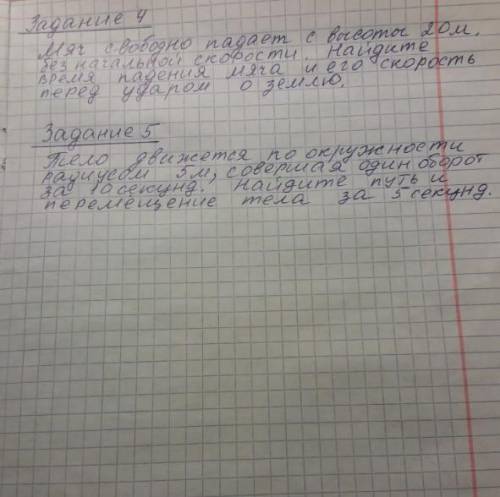 Задание 4
Мяч свободно падает с высоты 20м.
без начальной скорости. Найдите
время падения мяча и его скорость
перед ударом о землю.
Задание 5
Тело движется по окружности
радиусом 5м, совершая один оборот
за 10секунд. Найдите путь и
перемещение тела за 5 секунд.